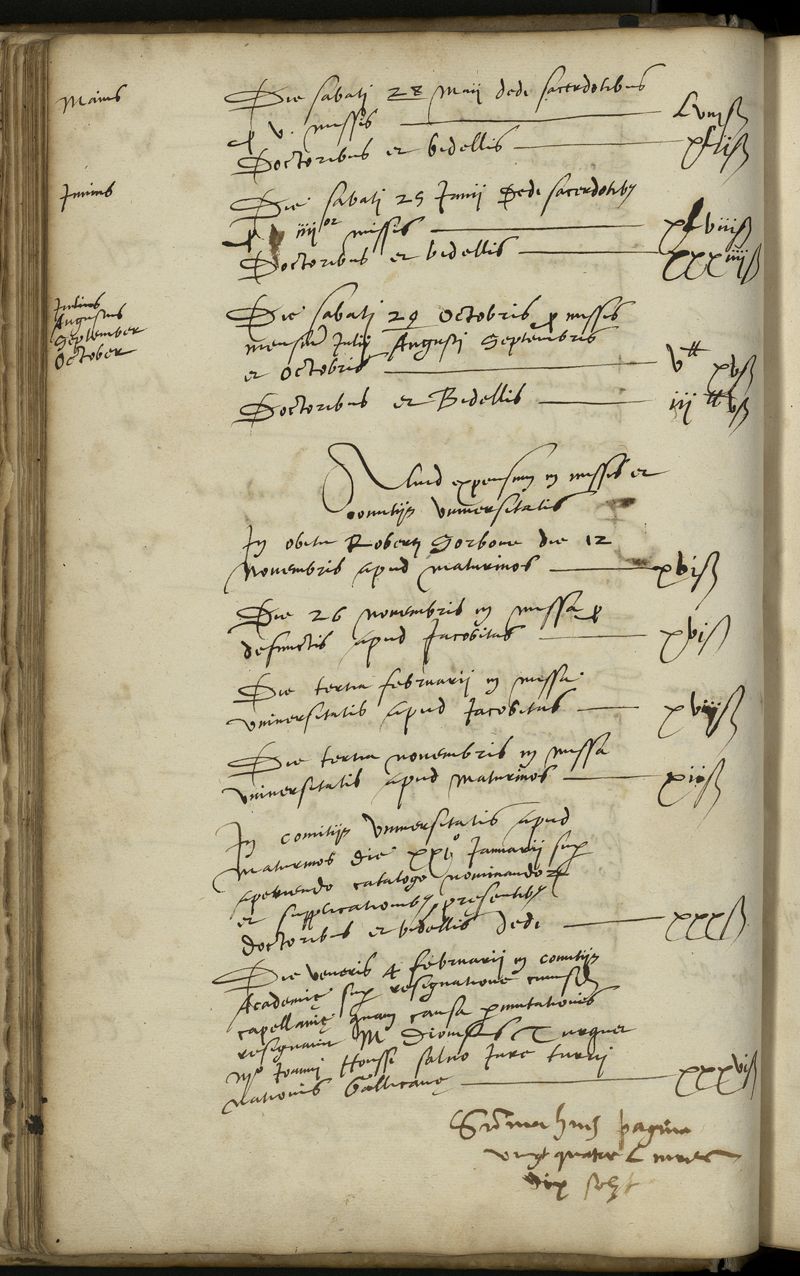 Maius
Die sabati 28 Maii dedi sacerdotibus
p v. missis Lviiiß
Doctoribus et bidellis xliiß
Junius
Die sabati 25 Junii Dedi sacerdotibus
p iiiior missis xlviiiß
Doctoribus et bidellis xxxiiiiß
Julius
Augustus
September
October
Die sabati 29 Octobris p missis
mensium Julii Augusti Septembris
et Octobris v₶ xvß
Doctoribus et Bidellis iiii₶ vß
Aliud expensum in missis et
comitiis universitatis
In obitu Roberti Sorbone die 12
novembris apud maturinos xviß
Die 26 novembris in missa p
defunctis apud Jacobitas xviß
Die tertia februarii in missa
universitatis apud Jacobitas xviiiß
Die tertia novembris in missa
universitatis apud maturinos xiiß
In comitiis universitatis apud
maturinos die Januarii sup
aperiendo catalogo nominandorum
et supplicationibus presentibus
doctoribus et bidellis dedi xxxß
Die veneris 4 februarii in comitiis
Academię sup resignatione cuiusd
capellanię quam causa pmutationis
resignavit M Dionisius Turquet
mro Joanni Housse salvo Jure turni
nationis Gallicanę xxxviß
Suma huius pagina
vingt quatre Livres
dix solz